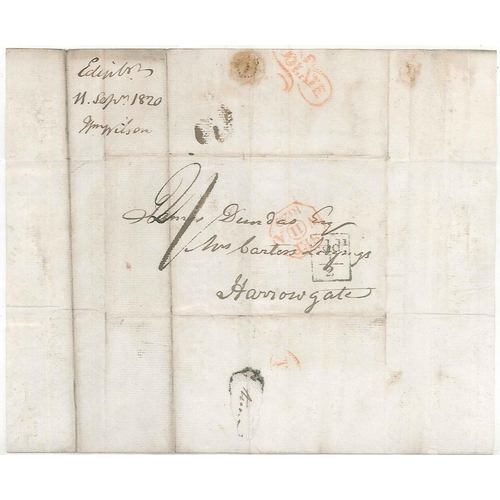 Edinbr
11. Sepr 1820
Wm Wilson
TOO LATE
James Dundas Esq
Mrs Carters Lodgings
Harrowgate
1/2